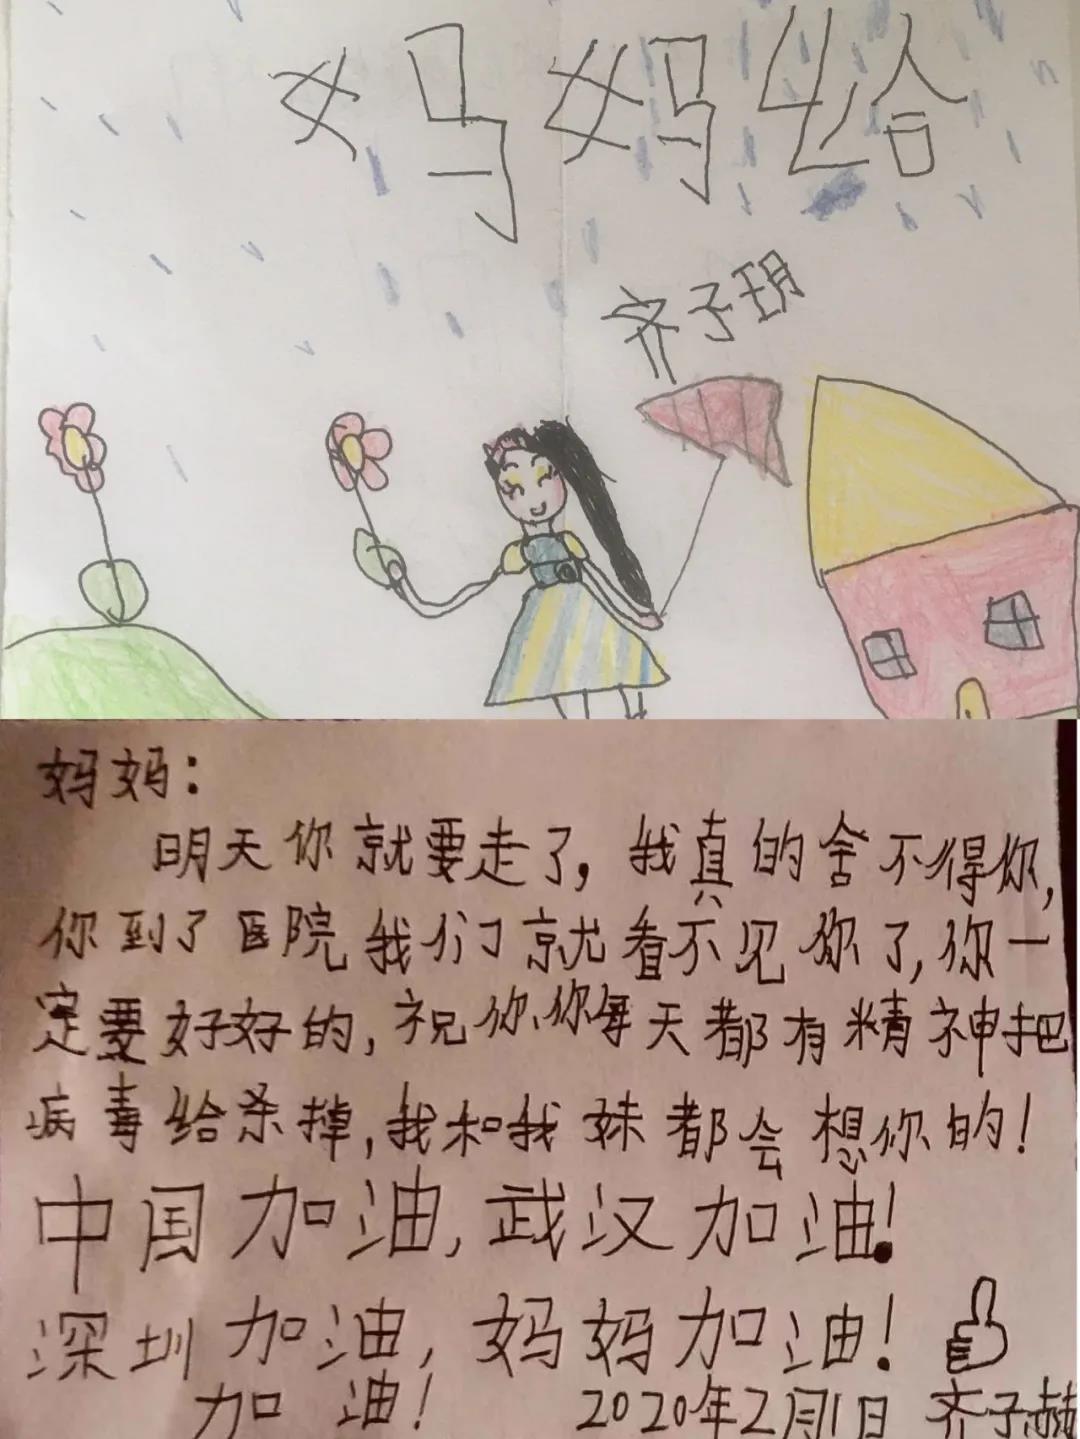 妈妈给
齐子玥
妈妈：
明天你就要走了，我真的舍不得你，
你到了医院我们就看不见你了，你一
定要好好的，祝你、你每天都有精神把
病毒给杀掉，我和我妹都会想你的！
中国加油，武汉加油！
深圳加油，妈妈加油！
加油！
2020年2月1日 齐子赫